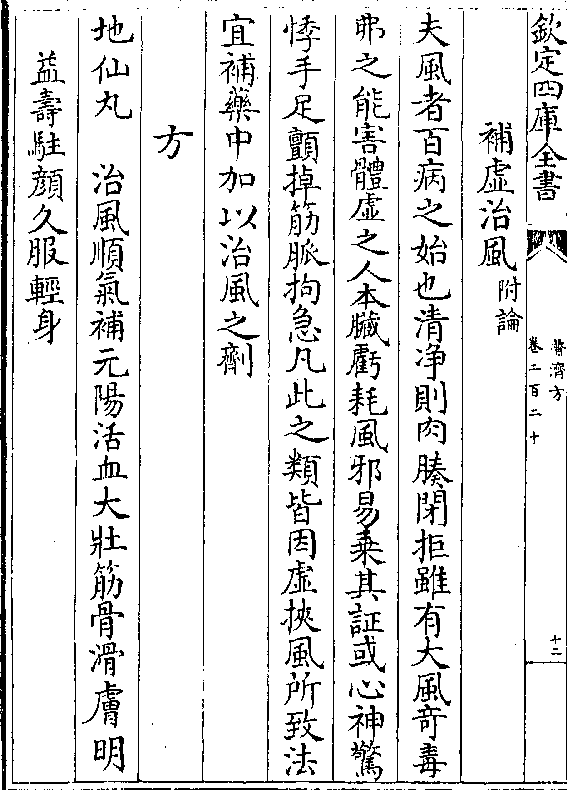 欽定四庫全書
普濟方
卷二百二十
十二
補虛治風附論
夫風者百病之始也清净則肉腠閉拒雖有大風奇毒
弗之能害體虛之人本臟虧耗風邪易乗其証或心神驚
悸手足顫掉筋脈拘急凡此之類皆因虛挾風所致法
宜補藥中加以治風之劑
方
地仙丸 治風順氣補元陽活血大壯筋骨滑膚明
益壽駐顔久服輕身